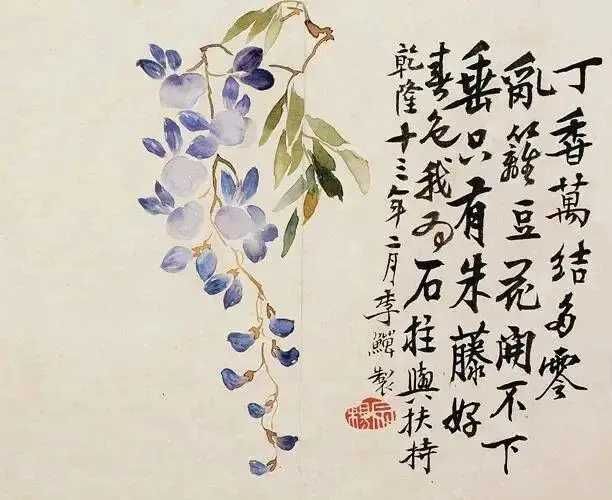 丁香萬結多零
亂籬豆花開不下
垂只有朱藤好
春色我為石柱與扶持
乾隆十三年二月李鱓製